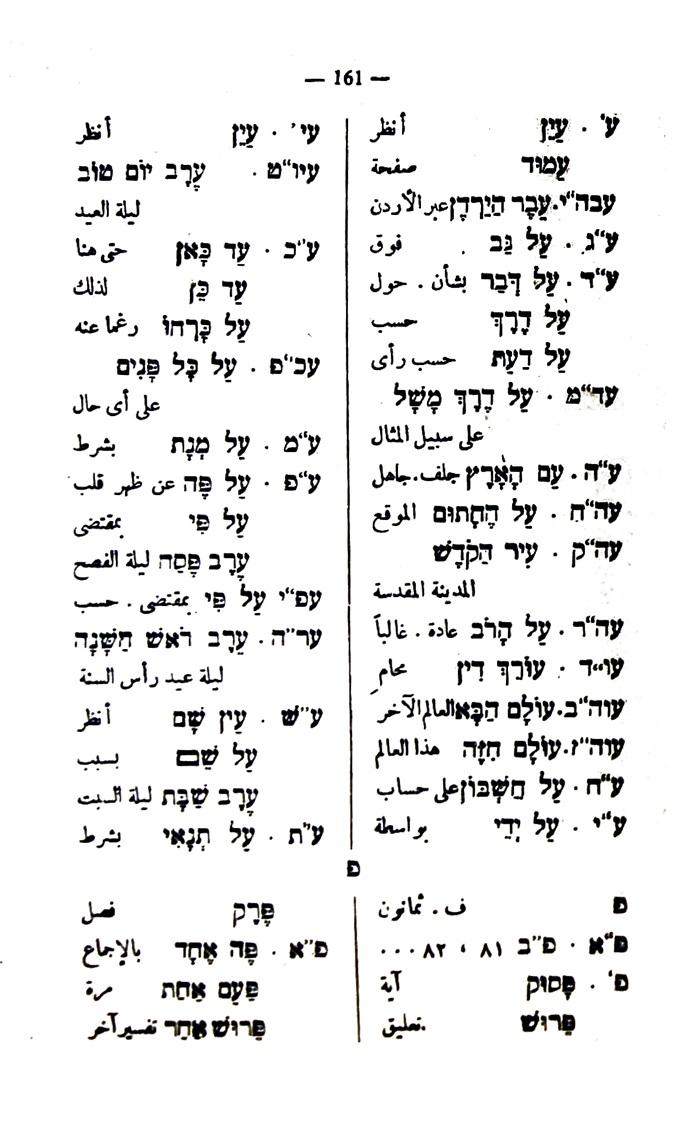 — 161 —
ע' . עַיֵּן أنظر
עַמּוּד صفحة
עבה"י. עֵבֶר הַיַּרְדֵּן عبر الأردن
ע"ג . עַל גַּב فوق
ע"ד . עַל דְּבַר بشأن . حول
עַל דֶּרֶךְ حسب
עַל דַּעַת حسب رأى
עד"מ . עַל דֶּרֶךְ מָשָׁל
على سبيل المثال
ע"ה . עַם הָאָרֶץ جلف . جاهل
עה"ח . עַל הֶחָתוּם الموقع
עה"ק . עִיר הַקֹּדֶשׁ
المدينة المقدسة
עה"ר . עַל הָרֹב عادة . غالباً
עו"ד . עוֹרֵךְ דִּין محامٍ
עוה"ב. עוֹלָם הַבָּא العالم الآخر
עוה"ז. עוֹלָם הַזֶּה هذا العالم
ע"ח . עַל חֶשְׁבּוֹן على حساب
ע"י . עַל יְדֵי بواسطة
עי' . עַיֵּן أنظر
עיו"ט . עֶרֶב יוֹם טוֹב
ليلة العيد
ע"כ . עַד כָּאן حتى هنا
עַד כֵּן لذلك
עַל כָּרְחוֹ رغما عنه
עכ"פ . עַל כָּל פָּנִים
على أى حال
ע"מ . עַל מְנָת بشرط
ע"פ . עַל פֶּה عن ظهر قلب
עַל פִּי بمقتضى
עֶרֶב פֶּסַח ليلة الفصح
עפ"י עַל פִּי بمقتضى . حسب
ער"ה . עֶרֶב רֹאשׁ הַשָּׁנָה
ليلة عيد رأس السنة
ע"ש . עַיֵּן שָׁם أنظر
עַל שֵׁם بسبب
עֶרֶב שַׁבָּת ليلة السبت
ע"ת . עַל תְּנָאִי بشرط
פ
פ ف . ثمانون
פ"א . פ"ב ٨١ ، ٨٢ ...
פ' . פָּסוּק آية
פֵּרוּשׁ تعليق.
פֶּרֶק فصل
פ"א . פֶּה אֶחָד بالإجماع
פַּעַם אַחַת مرة
פֵּרוּשׁ אַחֵר تفسير آخر